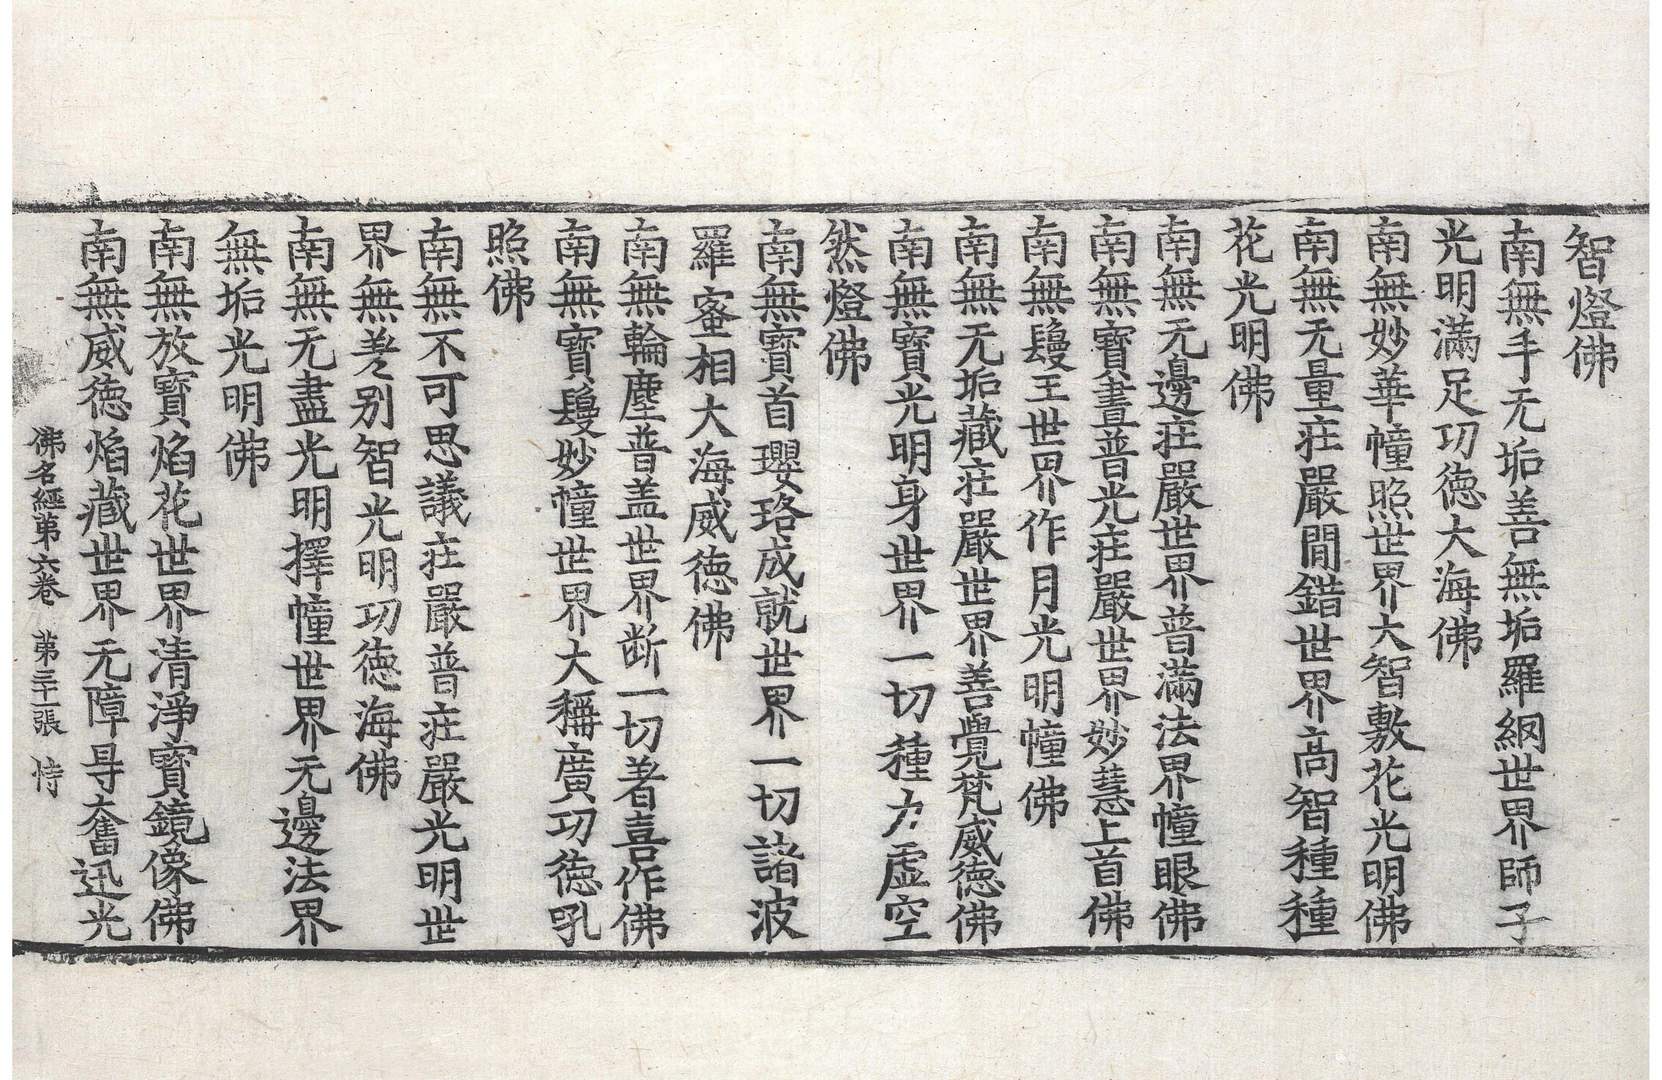 智燈佛
南無手无垢善無垢羅網世界師子
光明滿足功德大海佛
南無妙華幢照世界大智敷花光明佛
南無无量莊嚴間錯世界高智種種
花光明佛
南無无邊莊嚴世界普滿法界幢眼佛
南無寶晝普光莊嚴世界妙慧上首佛
南無鬘王世界作月光明幢佛
南無无垢藏莊嚴世界善覺梵威德佛
南無寶光明身世界一切種力虛空
然燈佛
南無寶首瓔珞成就世界一切諸波
羅蜜相大海威德佛
南無輪塵普盖世界断一切著喜作佛
南無寶鬘妙幢世界大稱廣功德吼
照佛
南無不可思議莊嚴普莊嚴光明世
界無差别智光明功德海佛
南無无盡光明擇幢世界无邊法界
無垢光明佛
南無放寶焰花世界清淨寶鏡像佛
南無威德焰藏世界无障㝵奮迅光
佛名經第六卷 第三十一張 恃